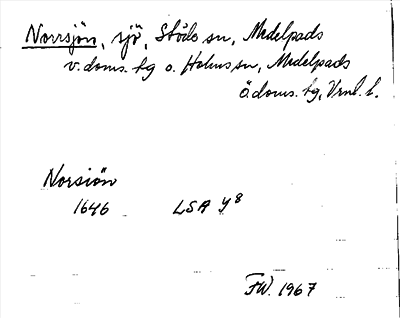 Norrsjön, sjö, Stöde sn, Medelpads
v. doms. hg o. Holms sn, Medelpads
ö. doms. hg, Vrnl. l.
Norsiön
1646 LSA Y8
FW. 1967